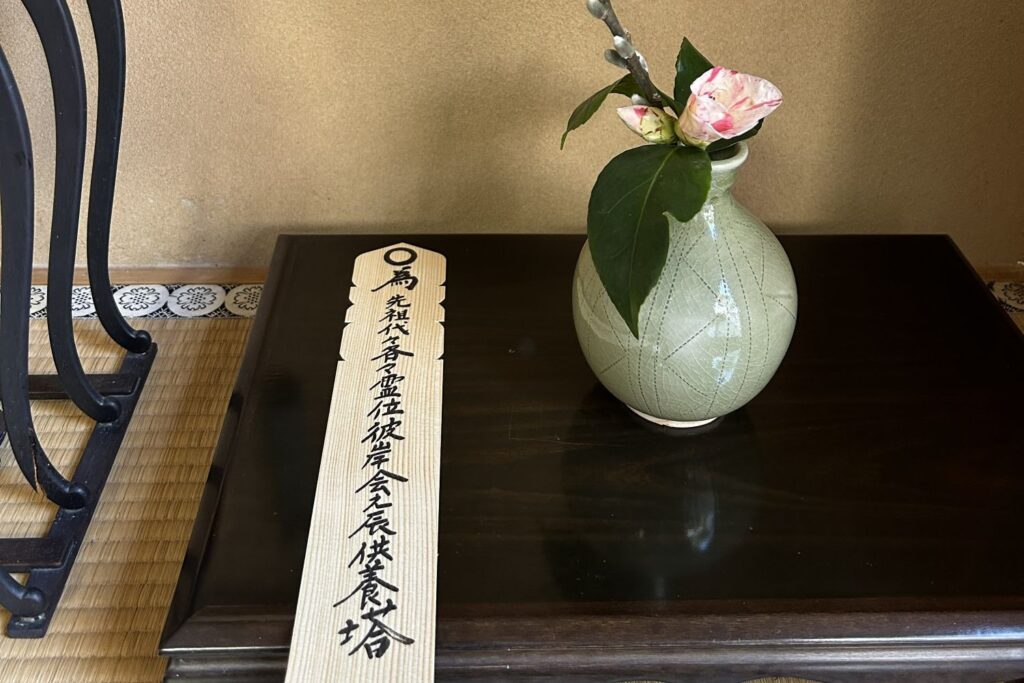 〇為先祖代々各々霊位彼岸会之辰供養塔